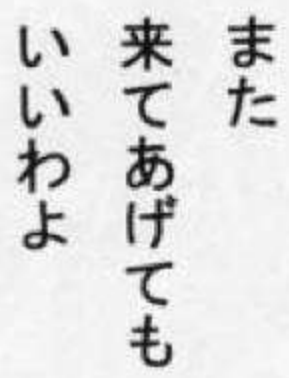 また
来てあげても
いいわよ